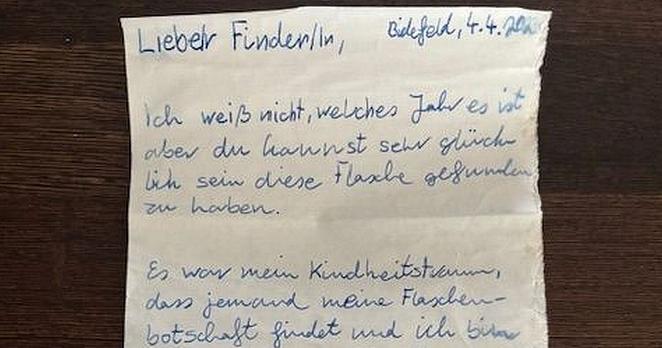 Lieber Finder/in,
Bidefeld, 4.4.
Ich weiß nicht, welches Jahr es ist
aber du kannst sehr glück-
lich sein diese Flasche gefunden
zu haben.
Es war mein Kindheitstraum,
dass jemand meine Flaschen-
botschaft findet und ich bin